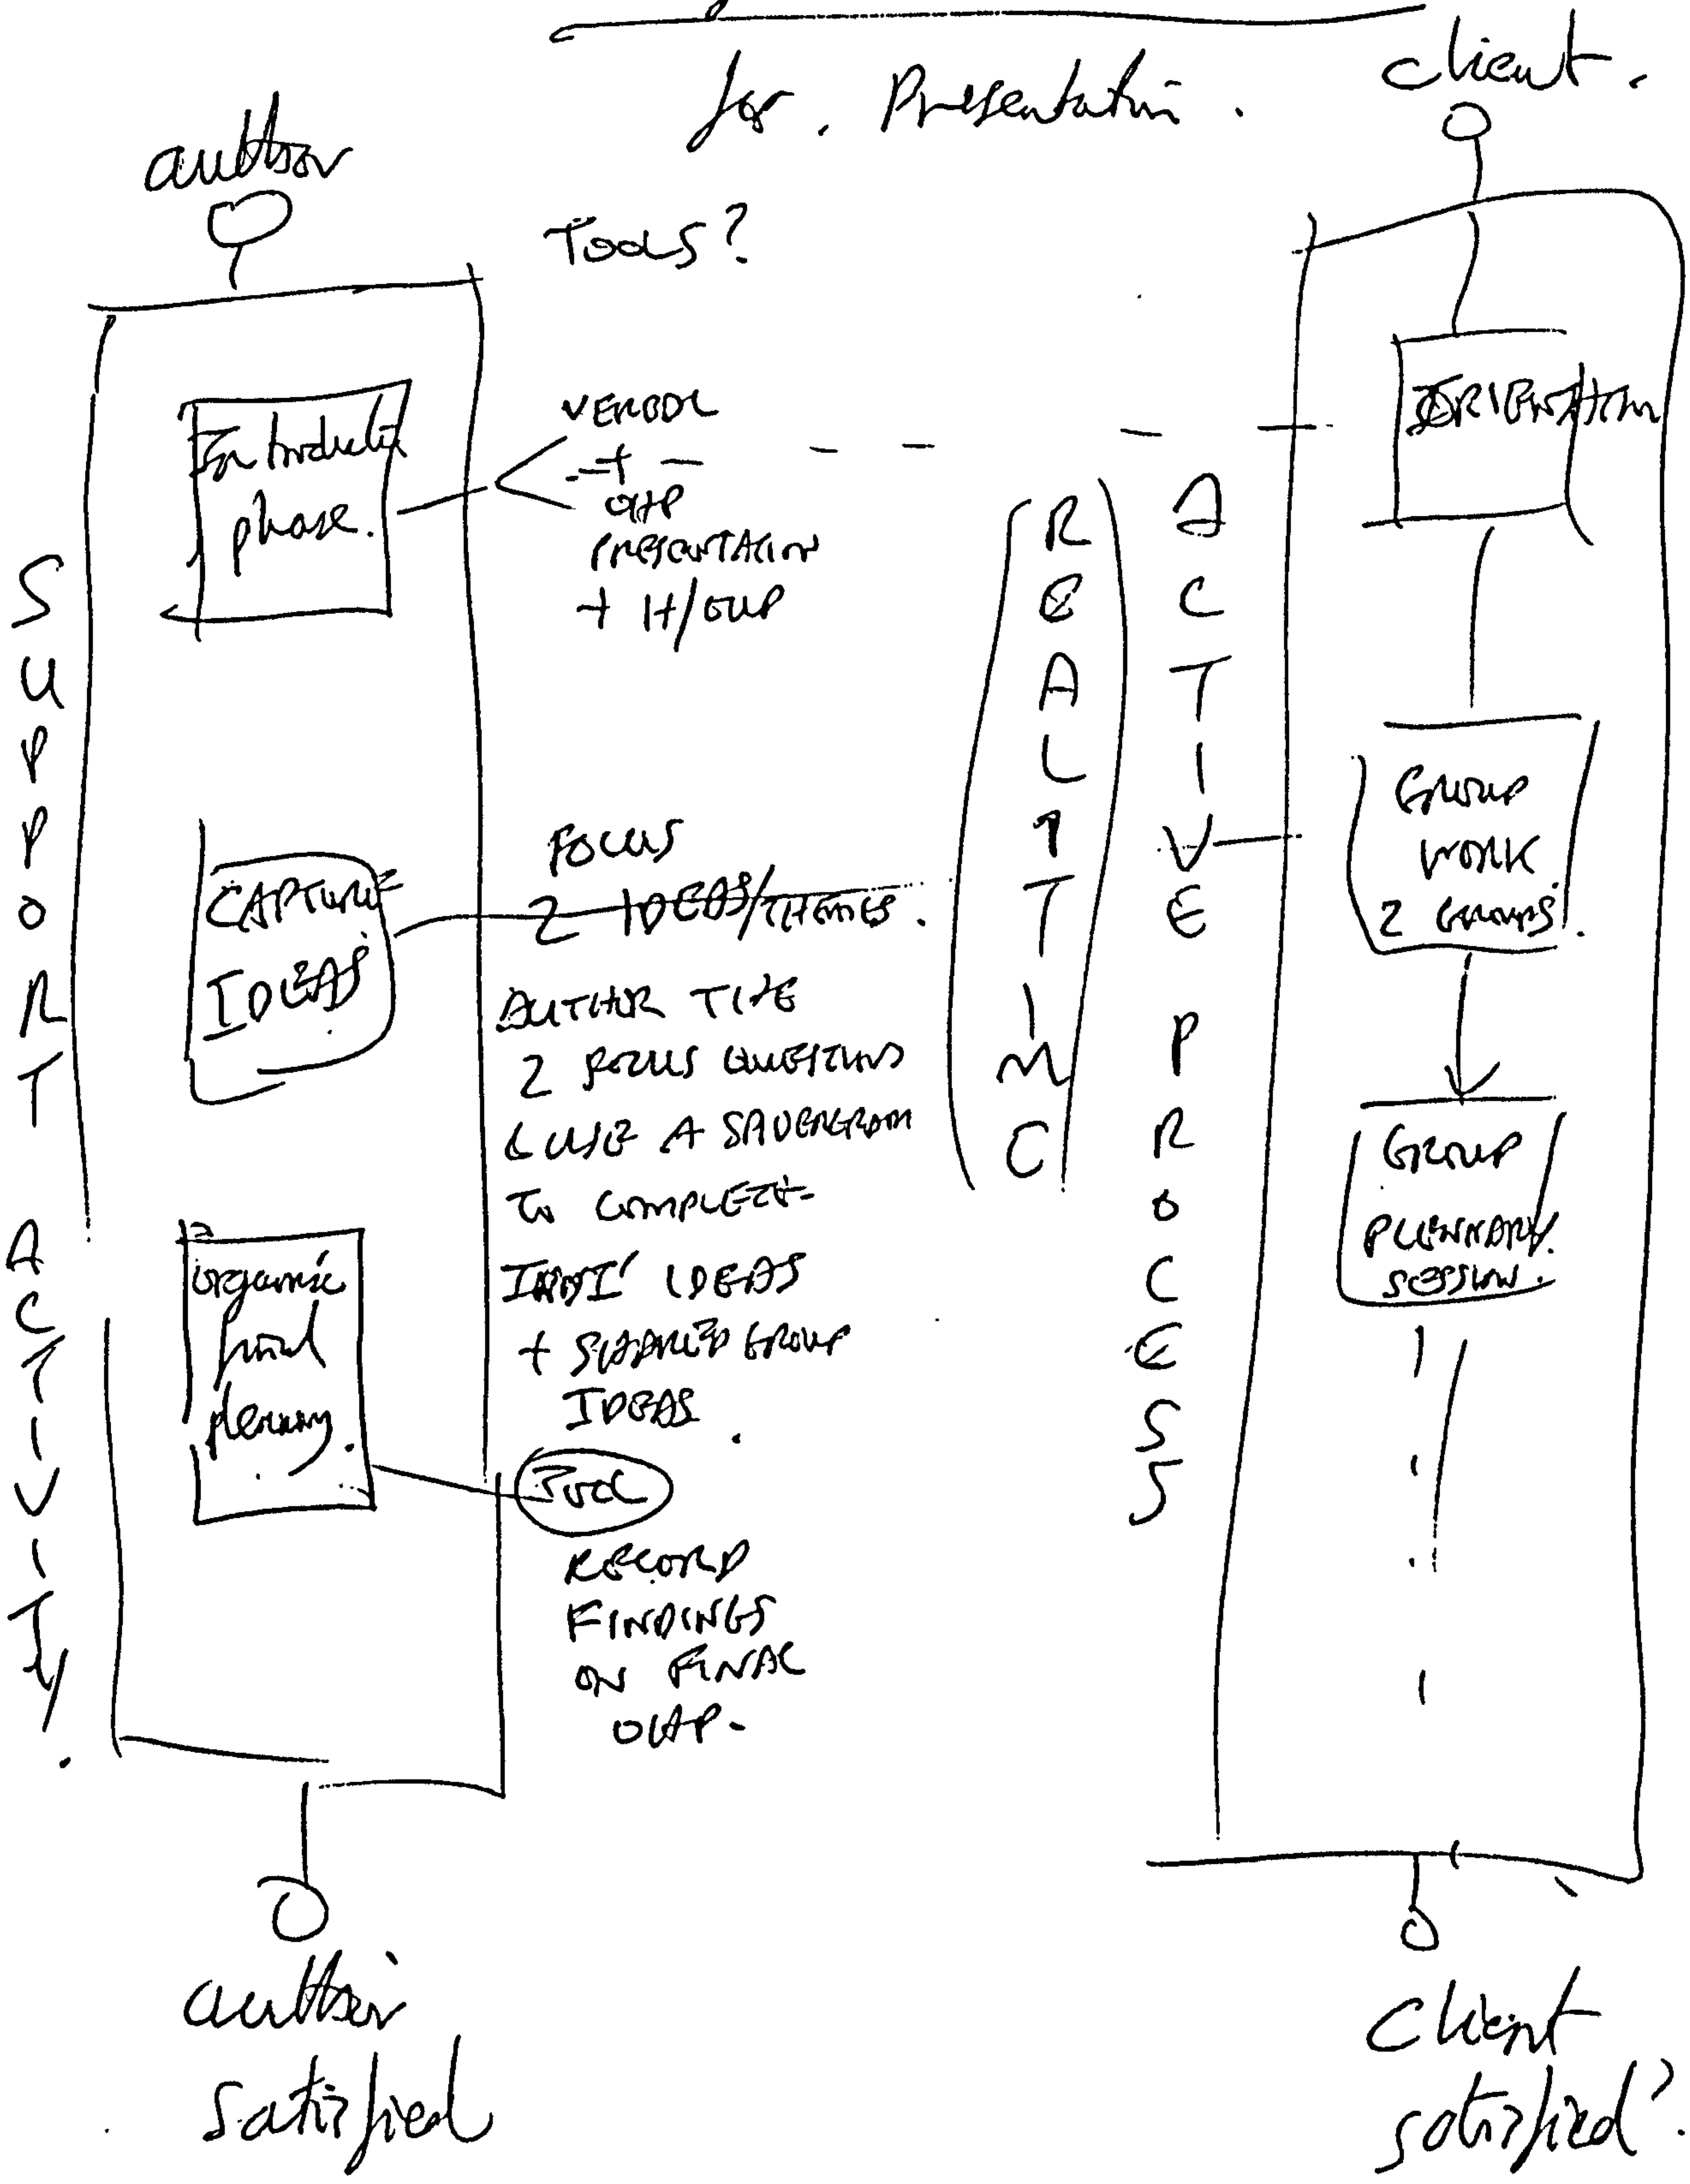 for. Presentation.
client.
author
Tools?
Introduction
phase.
VERBAL
+
OHP
PRESENTATION
+ H/OUP
ORIENTATION
SUPPORT ACTIVITY.
REALTIME
ACTIVE PROCESS
CAPTURE
IDEAS
FOCUS
2 IDEAS/THEMES.
AUTHOR THE
2 FOCUS QUESTIONS
TO COMPLETE
IDEAS
+ SHARED GROUP
IDEAS.
GROUP
WORK
2 GROUPS.
GROUP
PLENNARY.
SESSION.
organise
final
plenary.
TOOL
RECORD
FINDINGS
ON FINAL
OHP.
author
satisfied
client
satisfied?